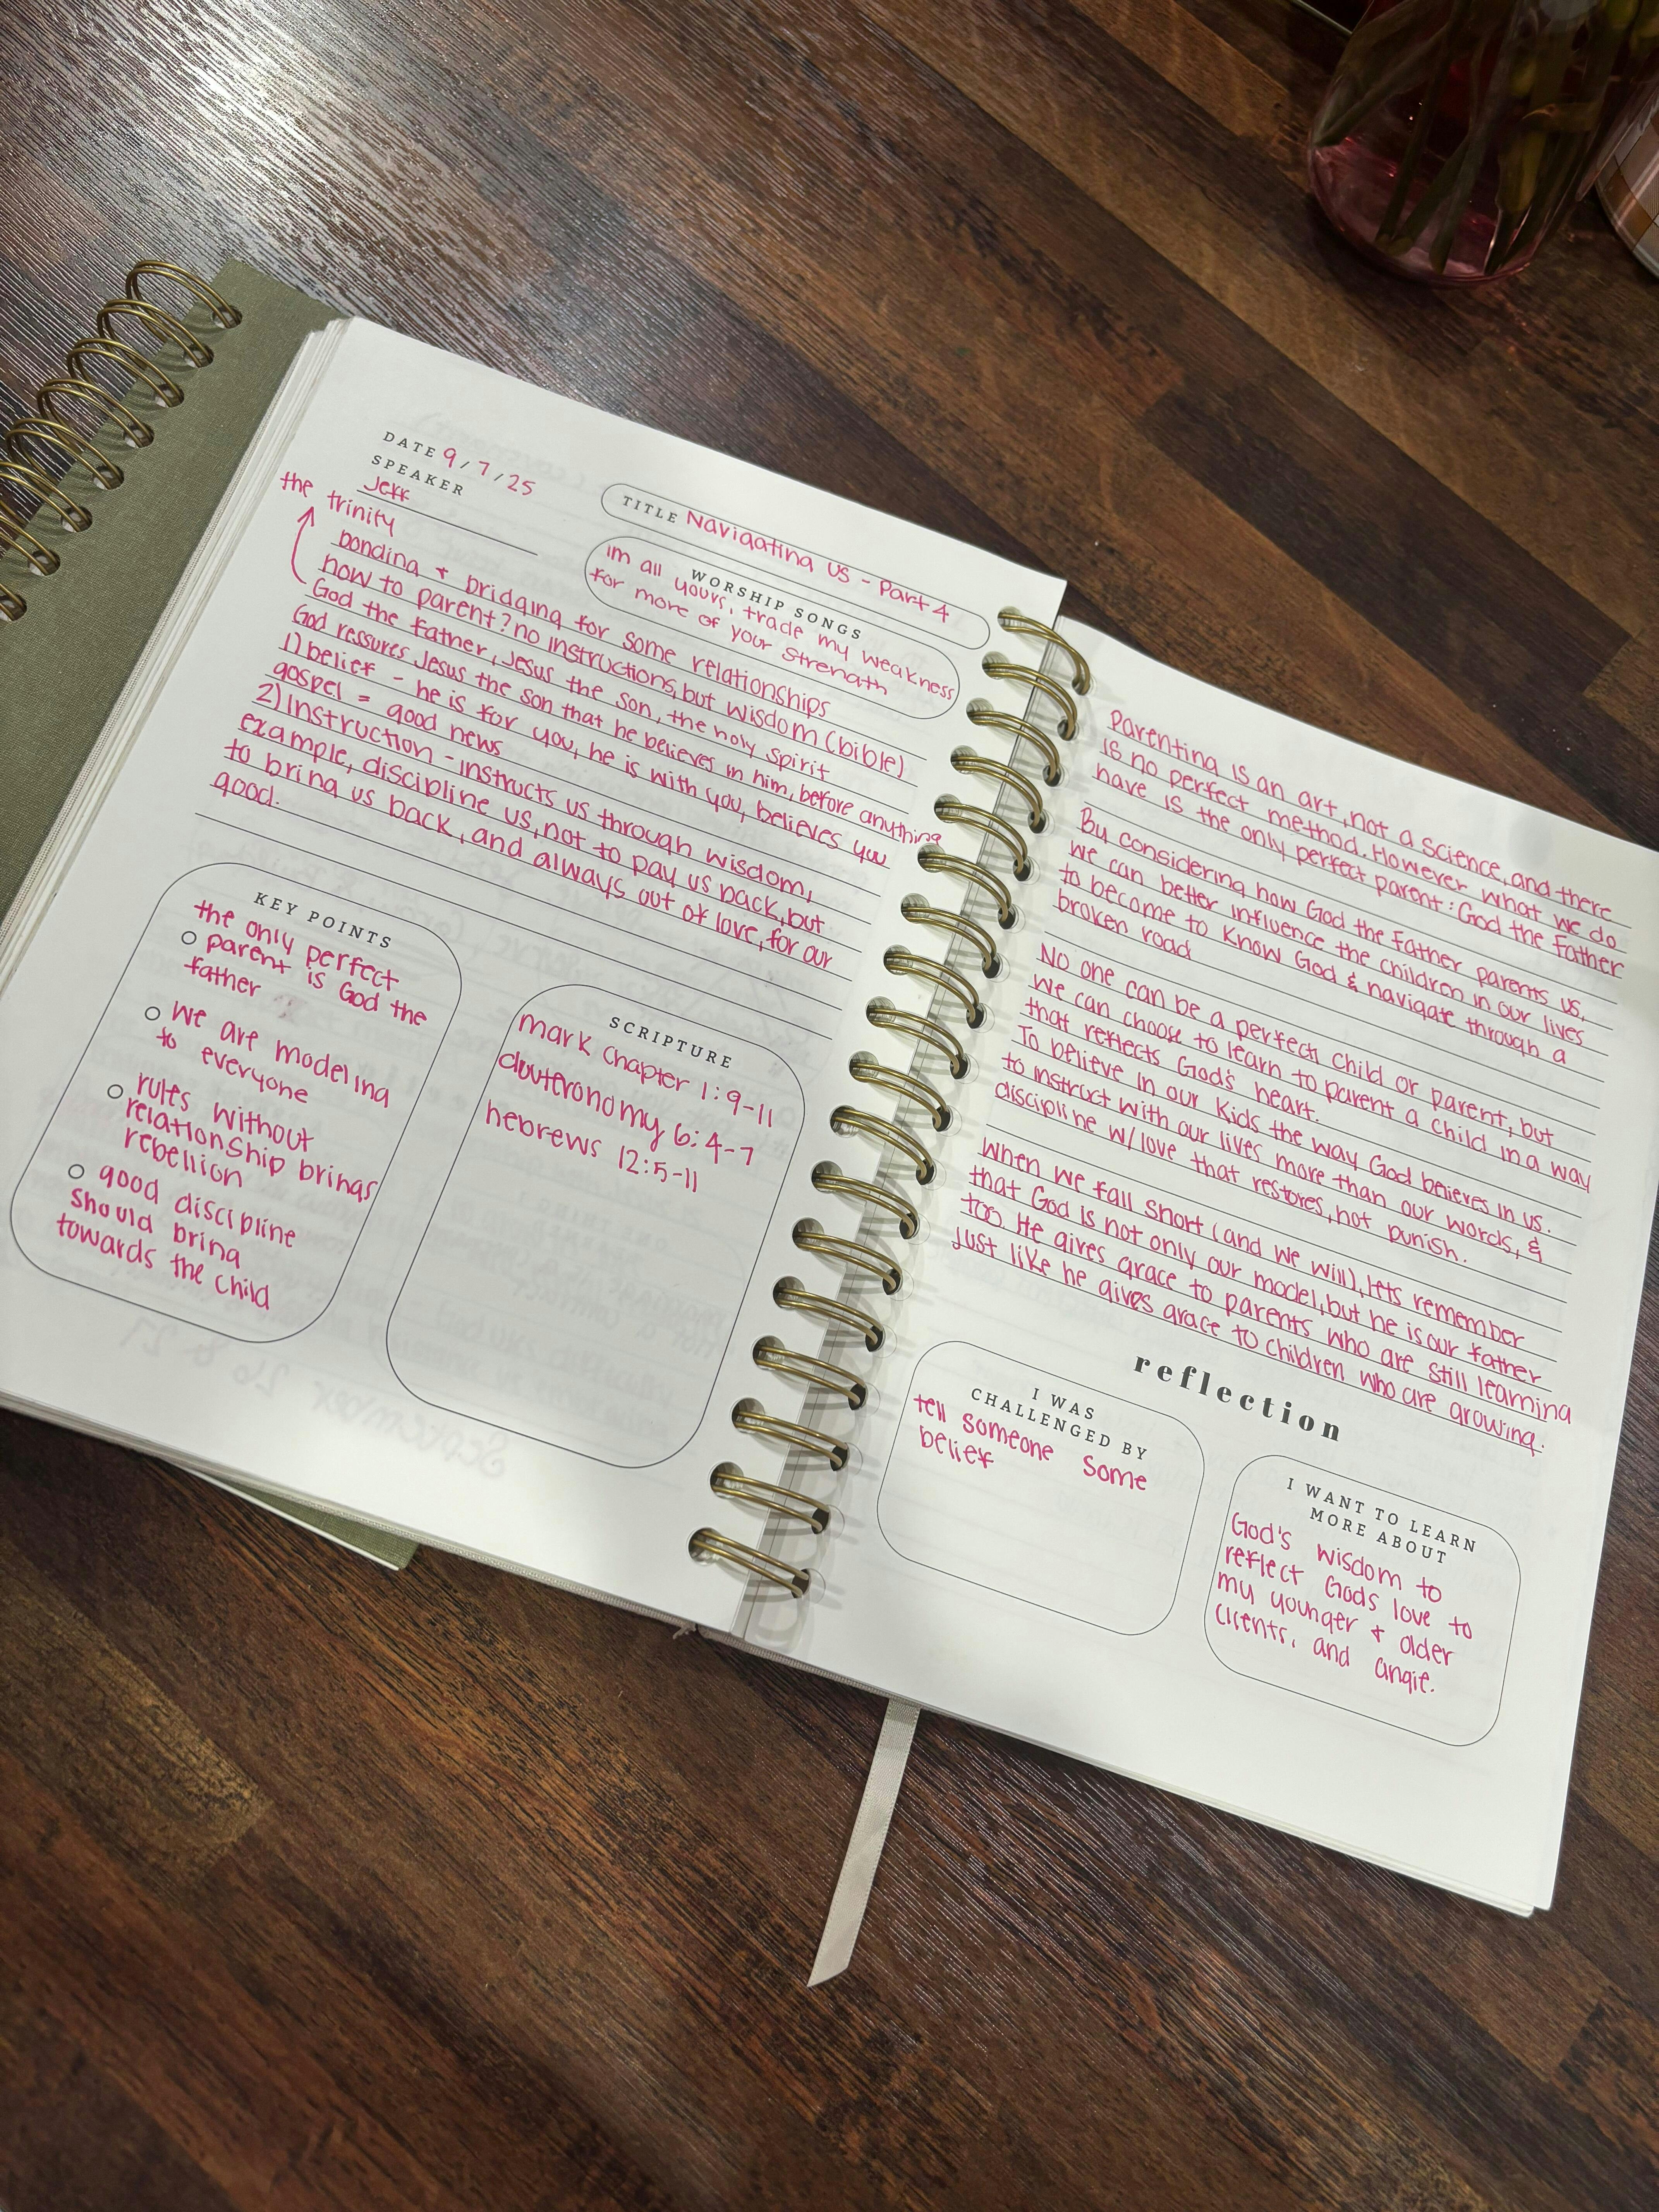 DATE 9/7/25
SPEAKER
Jeff
TITLE Navigating US - Part 4
WORSHIP SONGS
im all yours, trade my weakness
for more of your strength
the trinity
bonding + bridging for some relationships
how to parent? no instructions, but wisdom (bible)
God the father, Jesus the son, the holy spirit
God ressures Jesus the son that he believes in him, before anything
1) belief - he is for you, he is with you, believes you
gospel = good news
2) Instruction - instructs us through wisdom,
example, discipline us, not to pay us back, but
to bring us back, and always out of love, for our
good.
KEY POINTS
the only perfect
parent is God the
father
we are modeling
to everyone
rules without
relationship brings
rebellion
good discipline
should bring
towards the child
SCRIPTURE
mark chapter 1:9-11
deuteronomy 6:4-7
hebrews 12:5-11
Parenting is an art, not a science, and there
is no perfect method. However what we do
have is the only perfect parent: God the Father
By considering how God the Father parents us,
we can better influence the children in our lives
to become to know God & navigate through a
broken road
No one can be a perfect child or parent, but
we can choose to learn to parent a child in a way
that reflects God's heart.
To believe in our kids the way God believes in us.
to instruct with our lives more than our words, &
discipline w/love that restores, not punish.
When we fall short (and we will), lets remember
that God is not only our model, but he is our father
too. He gives grace to parents who are still learning
just like he gives grace to children who are growing.
reflection
I WAS
CHALLENGED BY
tell someone some
belief
I WANT TO LEARN
MORE ABOUT
God's wisdom to
reflect Gods love to
my younger + older
clients, and angie.